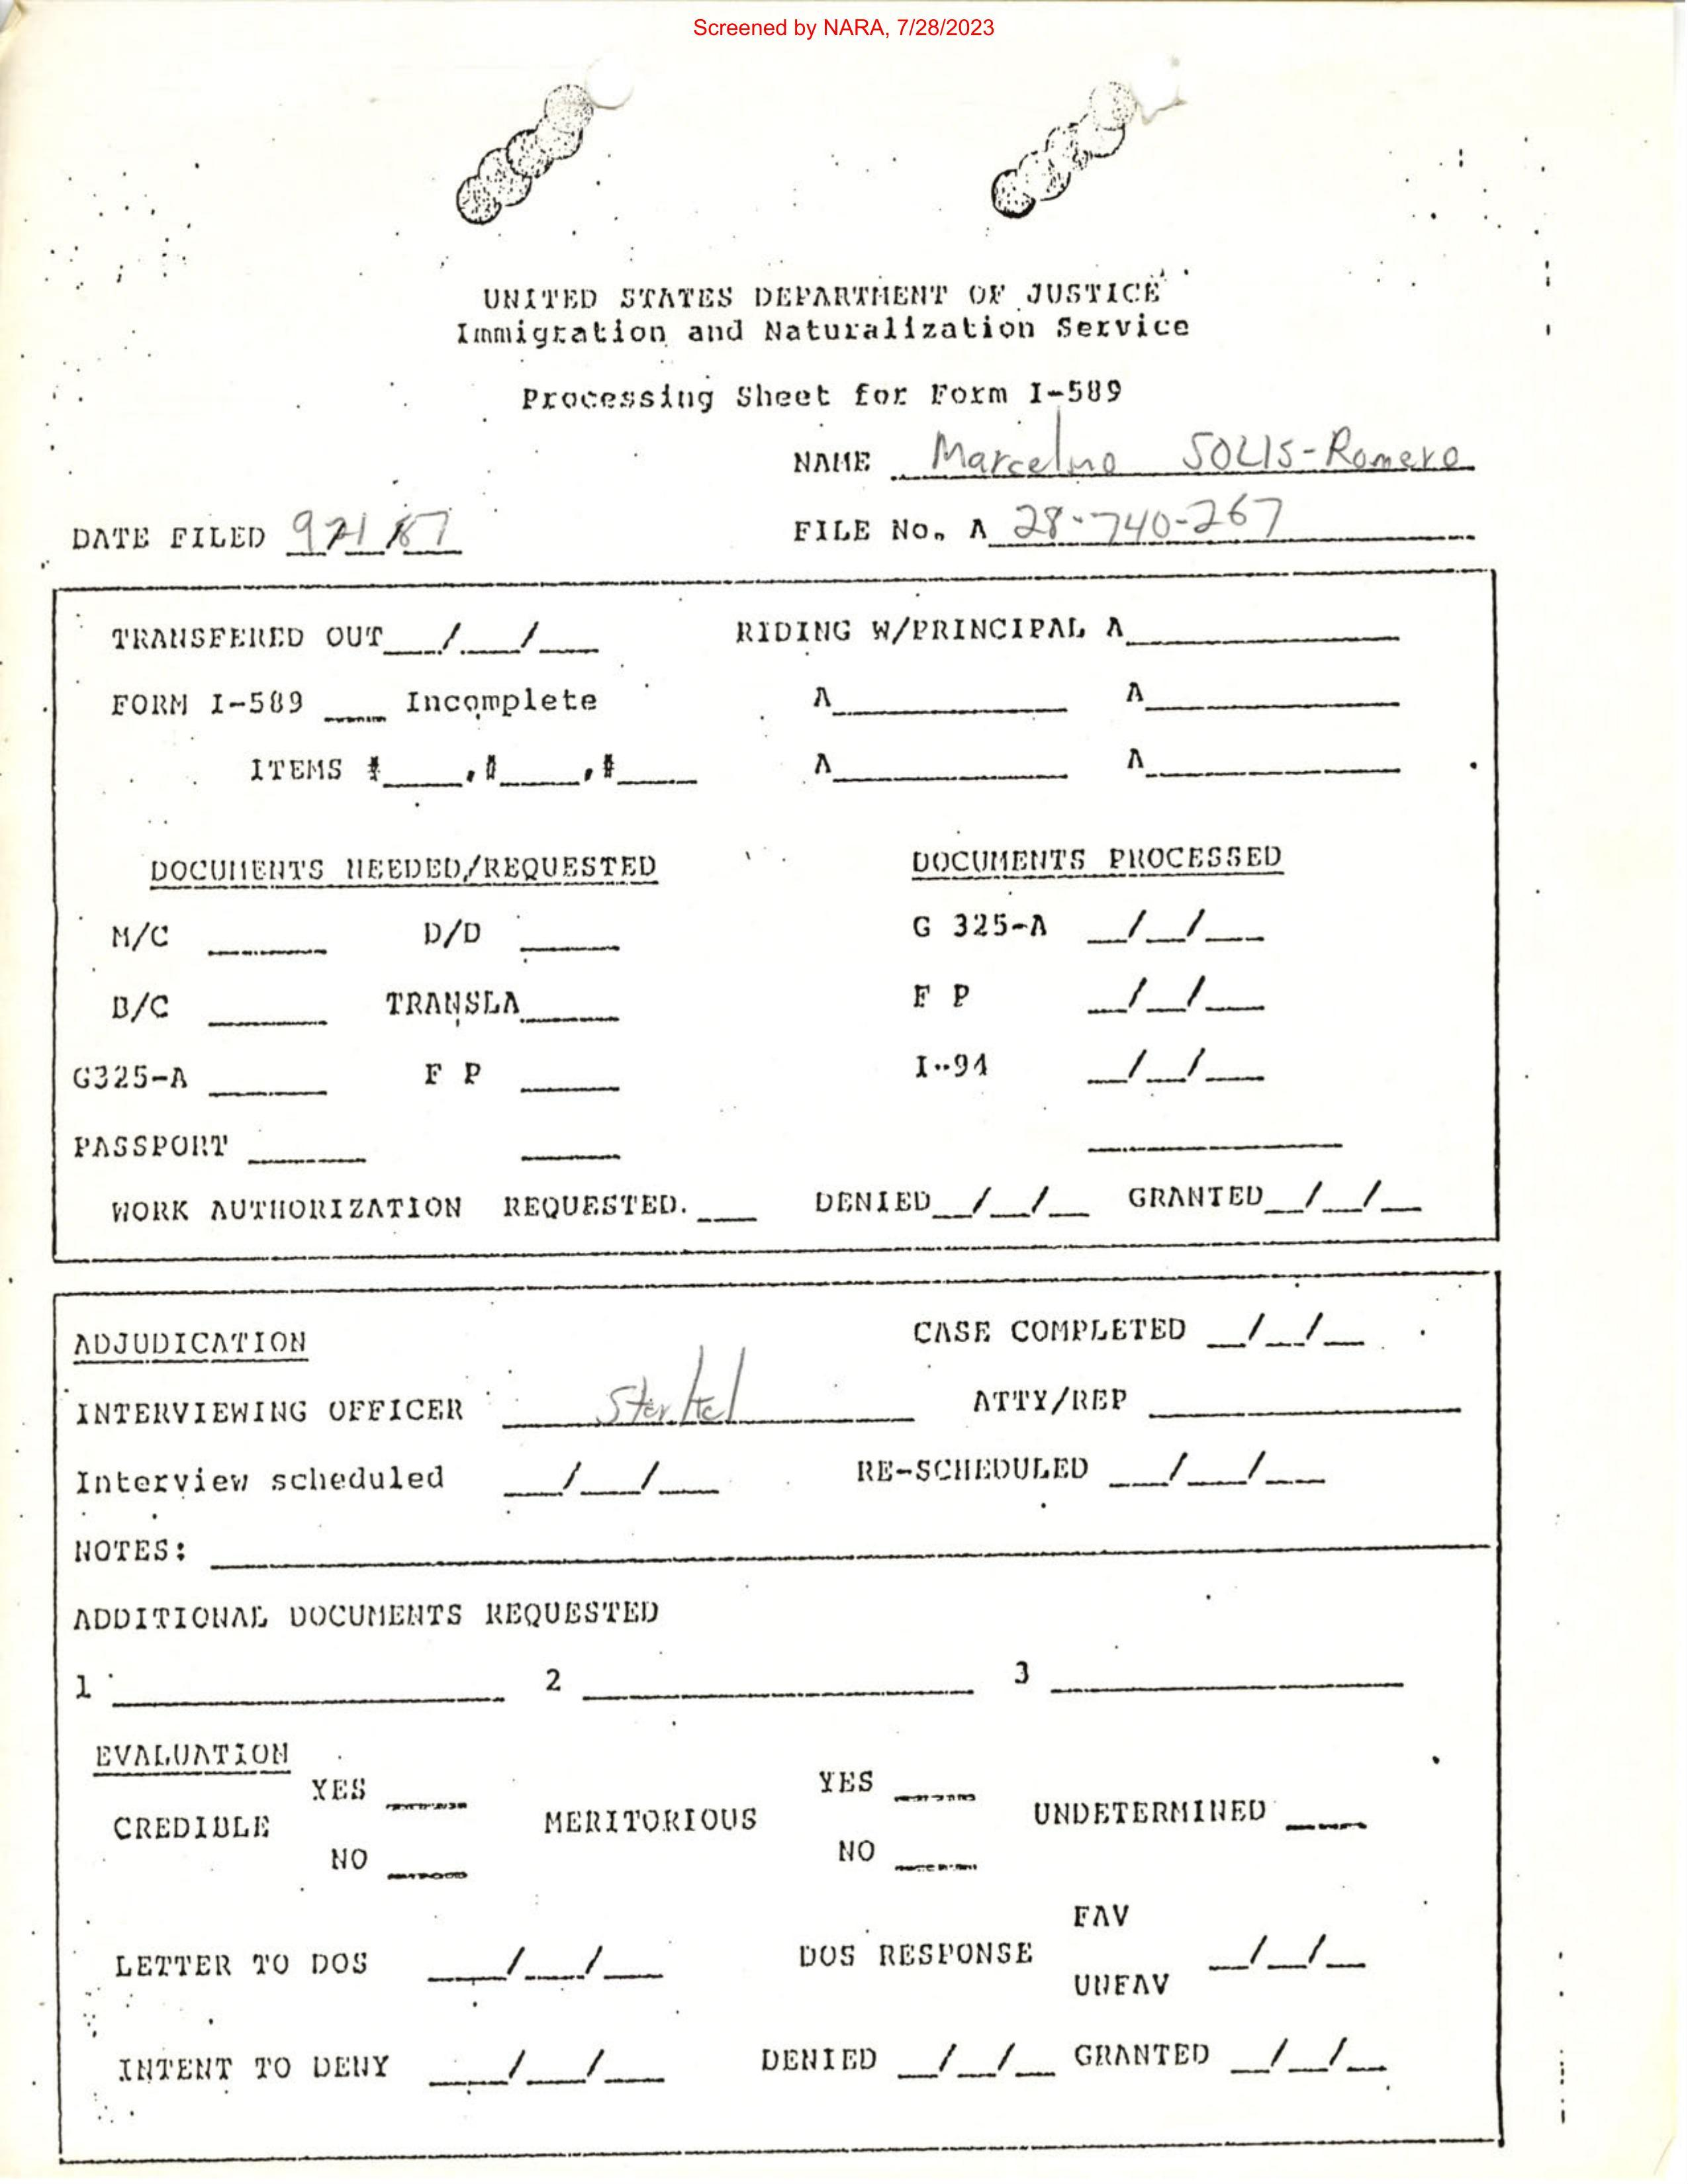 Screened by NARA, 7/28/2023
UNITED STATES DEPARTMENT OF JUSTICE
Immigration and Naturalization Service
Processing Sheet for Form I-589
NAME Marcelino SOLIS-Romero
DATE FILED 9/21/87 FILE No. A 28-740-267
TRANSFERED OUT___/___/___ RIDING W/PRINCIPAL A___
FORM I-589 ___ Incomplete A___ A___
ITEMS #____,#____,#____ A___ A___
DOCUMENTS NEEDED/REQUESTED DOCUMENTS PROCESSED
M/C ___ D/D ___ G 325-A __/__/___
B/C ___ TRANSLA___ F P __/__/___
G325-A ___ F P ___ I-94 __/__/___
PASSPORT ___ ___ ___
WORK AUTHORIZATION REQUESTED.___ DENIED__/__/__ GRANTED__/__/__
ADJUDICATION CASE COMPLETED __/__/__
INTERVIEWING OFFICER ATTY/REP ___
Interview scheduled ___/___/___ RE-SCHEDULED ___/___/___
NOTES: ___
ADDITIONAL DOCUMENTS REQUESTED
1 ___ 2 ___ 3 ___
EVALUATION
YES ____ YES ____
CREDIBLE MERITORIOUS UNDETERMINED ____
NO ____ NO ____
FAV
LETTER TO DOS ____/___/___ DOS RESPONSE __/__/__
UNFAV
INTENT TO DENY ____/___/___ DENIED __/__/__ GRANTED __/__/__